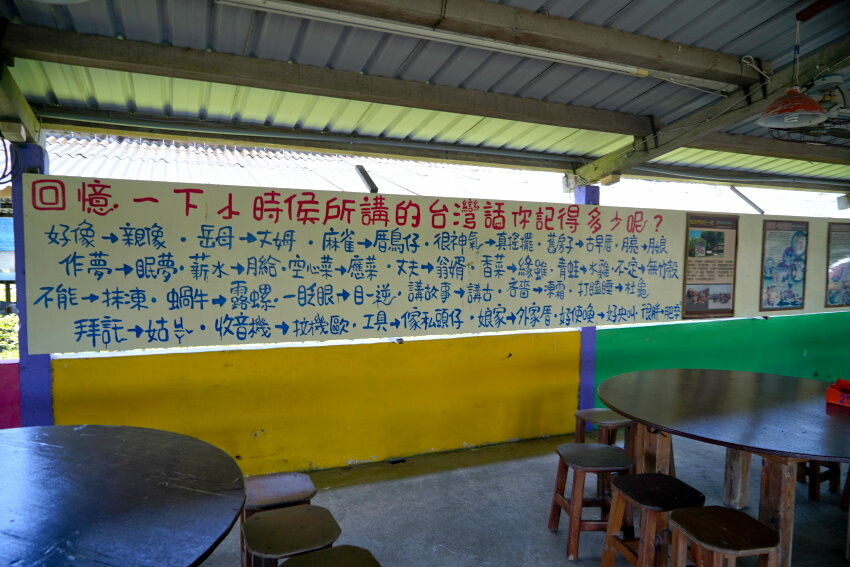 回憶一下小時候所講的台灣話你記得多少呢?
好像→親像·岳母→丈姆·麻雀→厝鳥仔·很神氣→真搖擺·舊房子→古早厝·月亮→月娘
作夢→眠夢·薪水→月給·空心菜→應菜·丈夫→翁婿·香菜→緣雖·青蛙→水雞·不一定→無竹殼
不能→抹東·蝸牛→露螺·一眨眼→目一逆·講故事→講古·吝嗇→凍霜·打瞌睡→杜龜
拜託→姑·收音機→拉機歐·工具→傢私頭仔·娘家→外家厝·好使喚→好央叫·很胖→肥